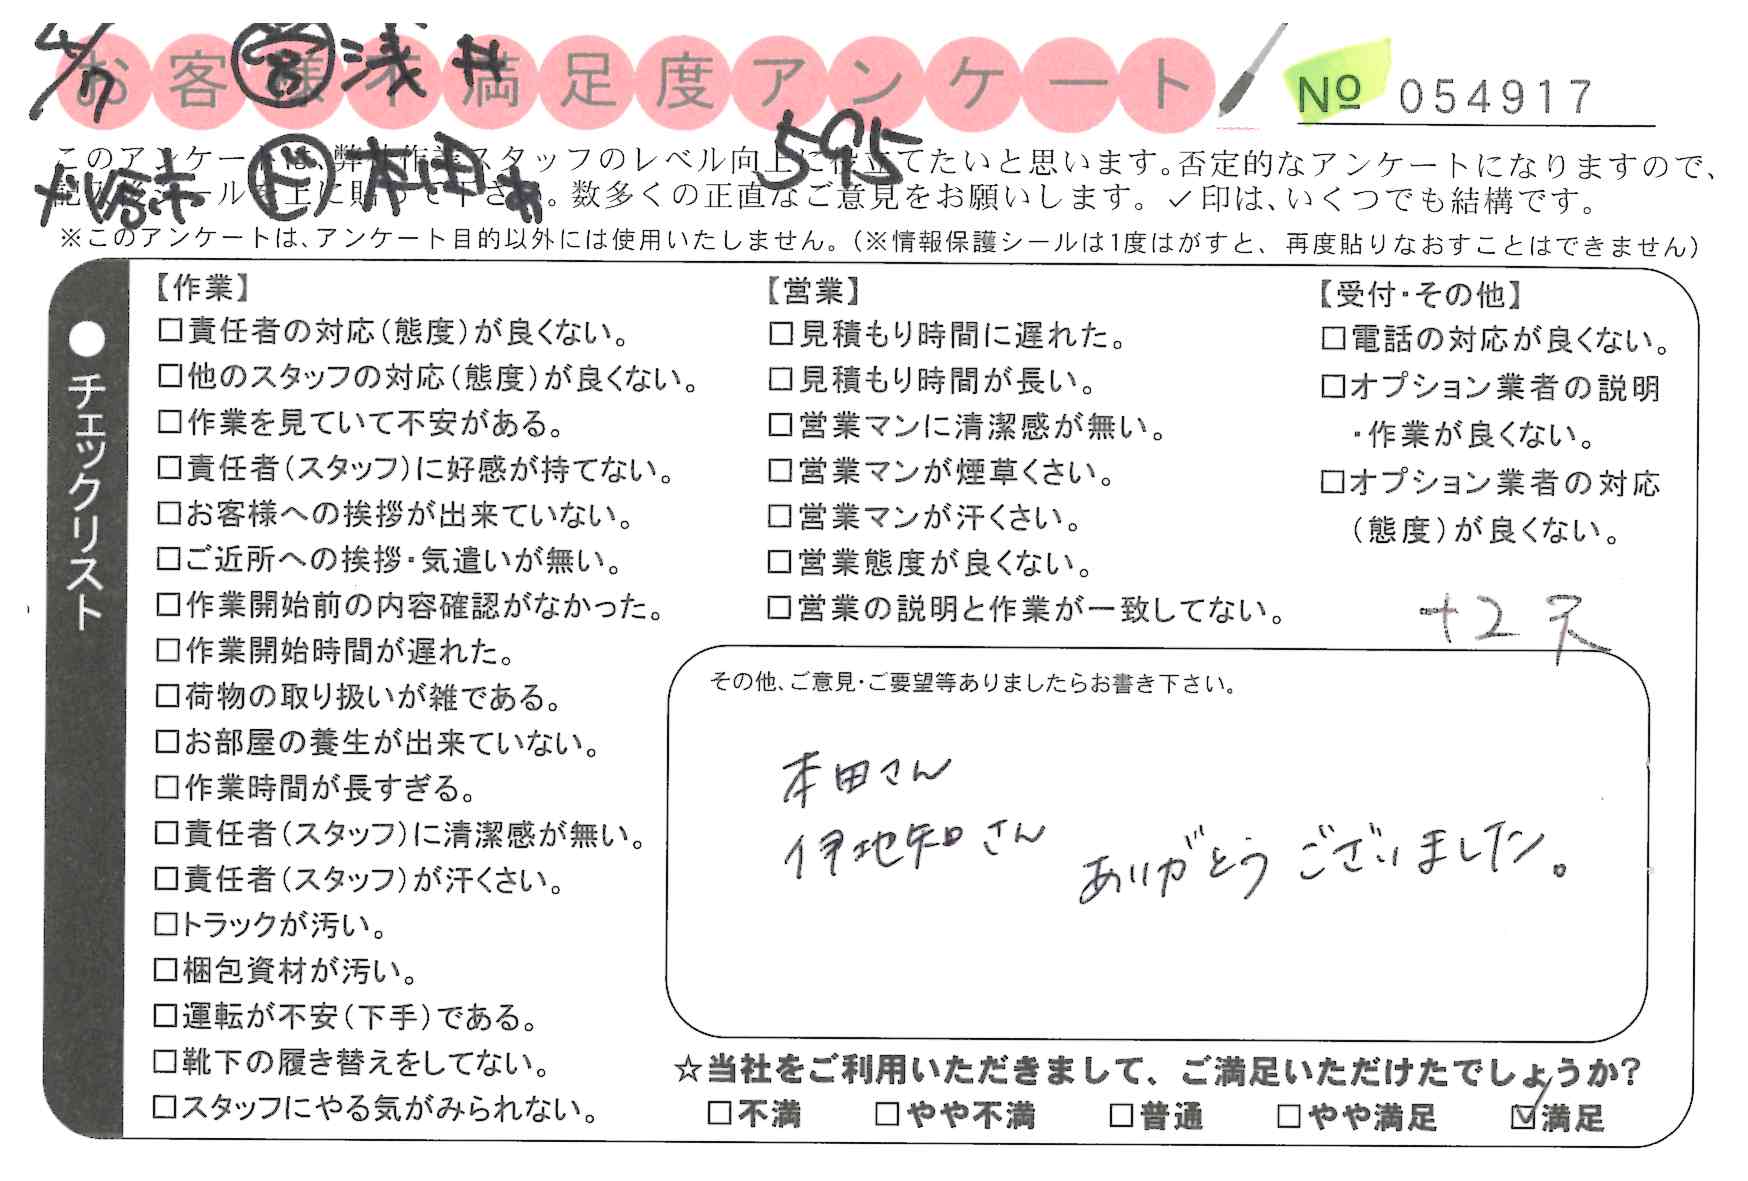 4/7 浅井
お客様不満足度アンケート
№ 054917
刈谷市 ド 本田 595
このアンケートは、弊社作業スタッフのレベル向上に役立てたいと思います。否定的なアンケートになりますので、
記入後シールを上に貼って下さい。数多くの正直なご意見をお願いします。✓印は、いくつでも結構です。
※このアンケートは、アンケート目的以外には使用いたしません。(※情報保護シールは1度はがすと、再度貼りなおすことはできません)
●チェックリスト
【作業】
□責任者の対応(態度)が良くない。
□他のスタッフの対応(態度)が良くない。
□作業を見ていて不安がある。
□責任者(スタッフ)に好感が持てない。
□お客様への挨拶が出来ていない。
□ご近所への挨拶・気遣いが無い。
□作業開始前の内容確認がなかった。
□作業開始時間が遅れた。
□荷物の取り扱いが雑である。
□お部屋の養生が出来ていない。
□作業時間が長すぎる。
□責任者(スタッフ)に清潔感が無い。
□責任者(スタッフ)が汗くさい。
□トラックが汚い。
□梱包資材が汚い。
□運転が不安(下手)である。
□靴下の履き替えをしてない。
□スタッフにやる気がみられない。
【営業】
□見積もり時間に遅れた。
□見積もり時間が長い。
□営業マンに清潔感が無い。
□営業マンが煙草くさい。
□営業マンが汗くさい。
□営業態度が良くない。
□営業の説明と作業が一致してない。
【受付・その他】
□電話の対応が良くない。
□オプション業者の説明
・作業が良くない。
□オプション業者の対応
(態度)が良くない。
その他、ご意見・ご要望等ありましたらお書き下さい。
本田さん
伊地知さん ありがとうございました。
☆当社をご利用いただきまして、ご満足いただけたでしょうか?
□不満 □やや不満 □普通 □やや満足 ☑満足